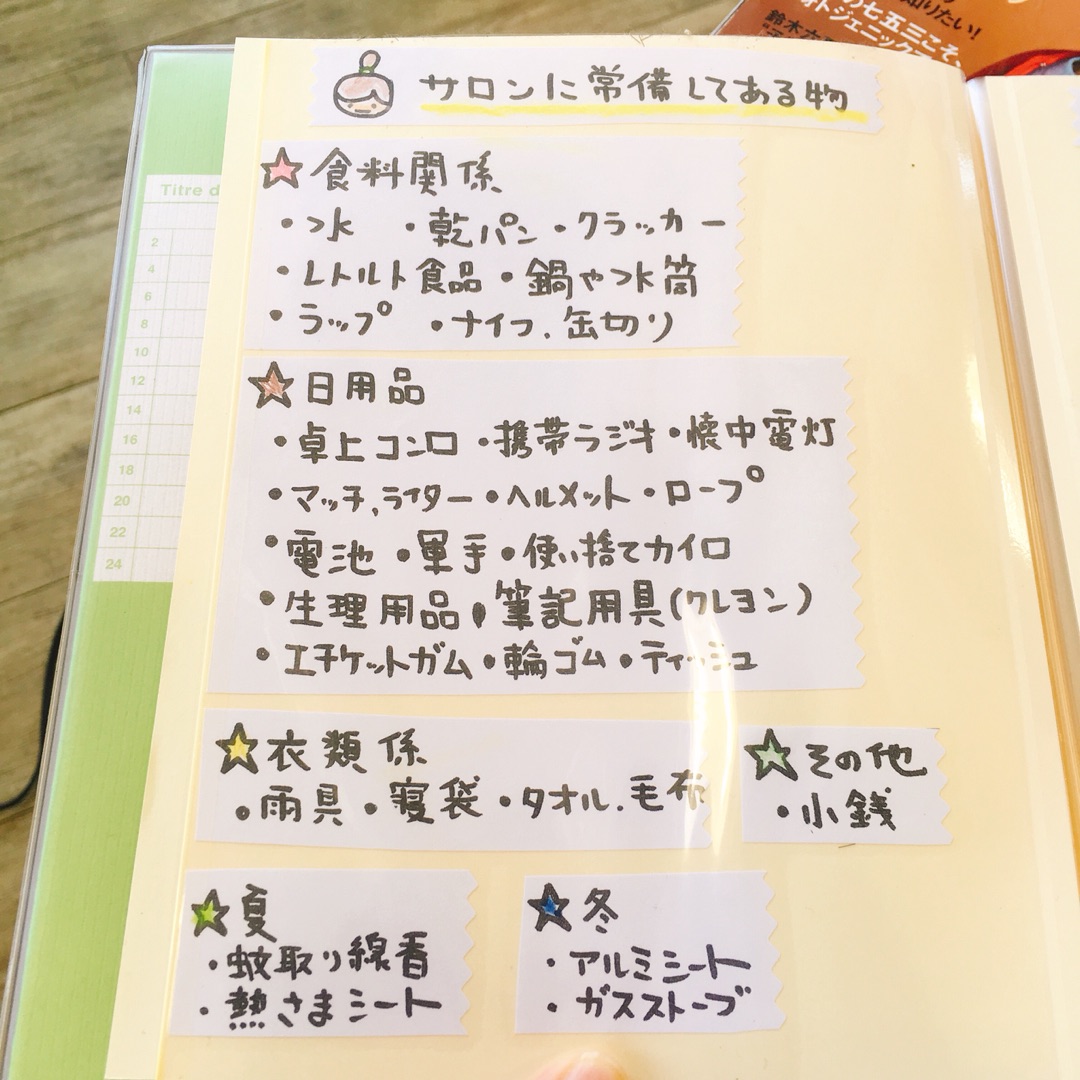 知りたい!
の七五三こそ、
鈴木
サロンに常備してある物
☆食料関係
・水 ・乾パン・クラッカー
・レトルト食品・鍋や水筒
・ラップ ・ナイフ、缶切り
☆日用品
・卓上コンロ・携帯ラジオ・懐中電灯
・マッチ、ライター・ヘルメット・ロープ
・電池・軍手・使い捨てカイロ
・生理用品・筆記用具(クレヨン)
・エチケットガム・輪ゴム・ティッシュ
☆衣類係
・雨具・寝袋・タオル、毛布
☆その他
・小銭
☆夏
・蚊取り線香
・熱さまシート
☆冬
・アルミシート
・ガスストーブ
Titre d
2
4
6
8
10
12
14
16
18
20
22
24